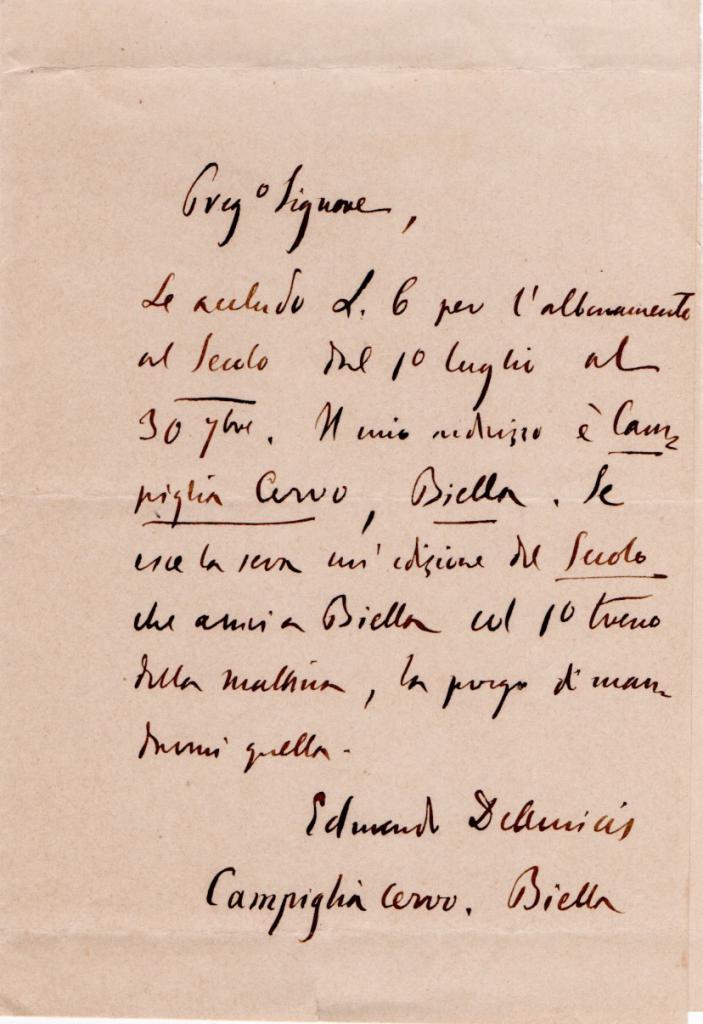 Preg.º Signore,
Le accludo L. 6 per l'abbonamento
al Secolo dal 1º luglio al
30 7bre. Il mio indirizzo è Cam-
piglia Cervo, Biella. Se
esce la sera un'edizione del Secolo
che arrivi a Biella col 1º treno
della mattina, la prego di man-
darmi quella.
Edmondo DeAmicis
Campiglia Cervo. Biella